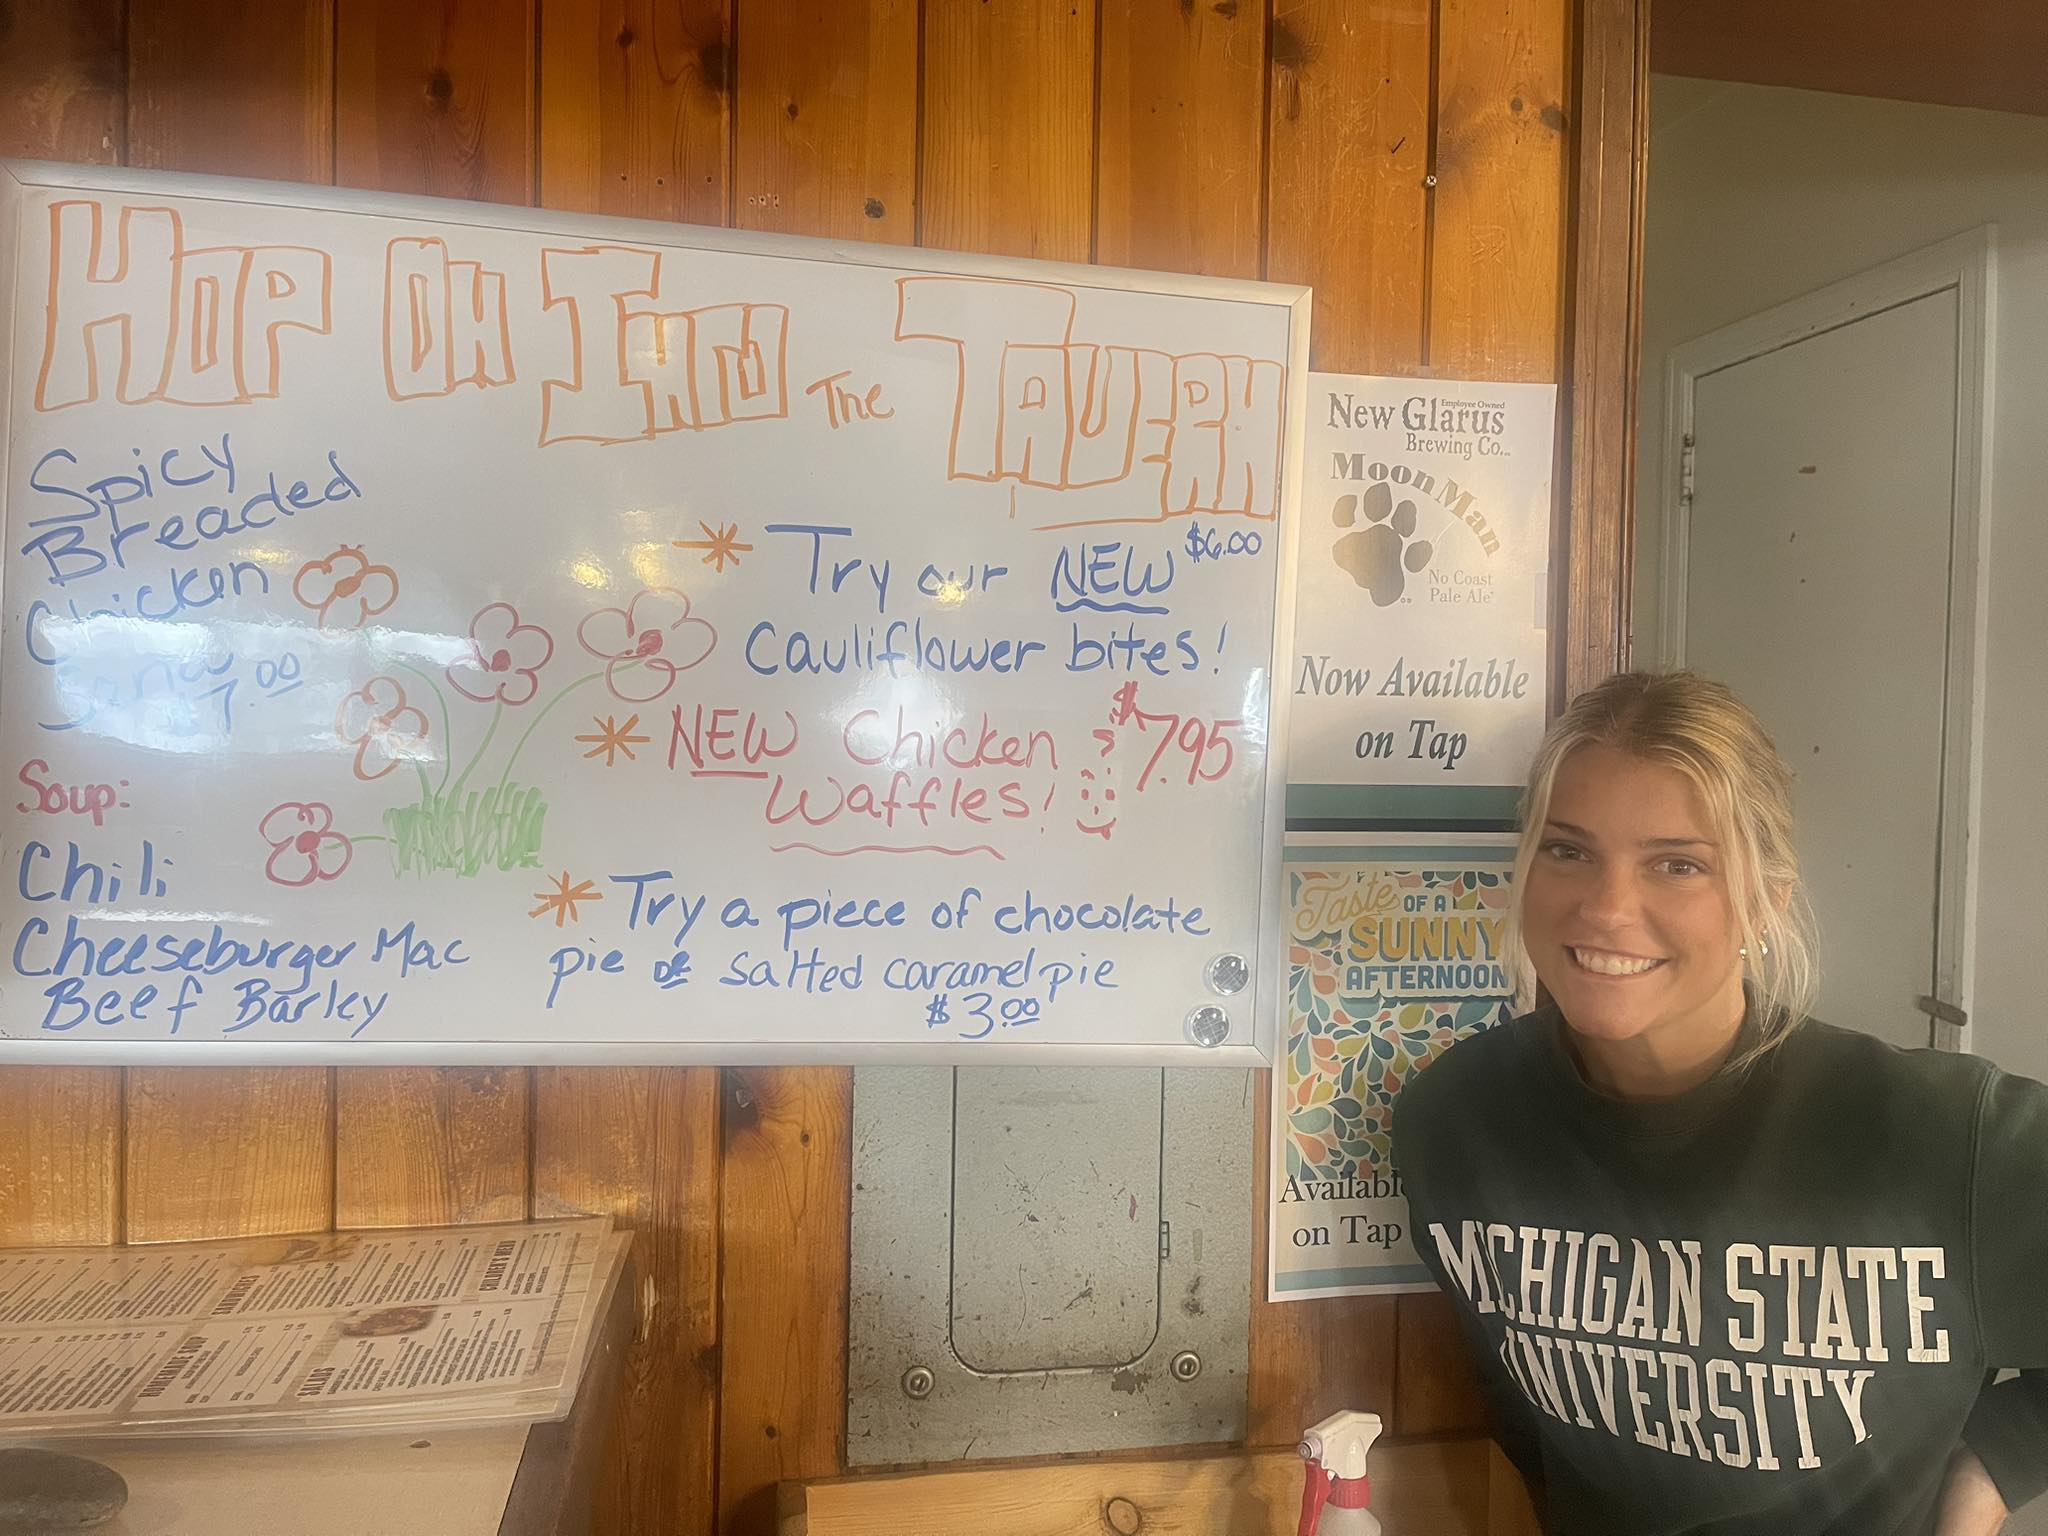 HOP ON INTO The TAVERN
Spicy
Breaded
Chicken
7.00
Soup:
Chili
Cheeseburger Mac
Beef Barley
Try our NEW $6.00
Cauliflower bites!
NEW Chicken $7.95
Waffles!
Try a piece of chocolate
pie or salted caramel pie
$3.00
New Glarus
Employee Owned
Brewing Co...
Moon Man
No Coast
Pale Ale
Now Available
on Tap
Taste OF A
SUNNY
AFTERNOON
Available
on Tap
MICHIGAN STATE
UNIVERSITY
SANDWICHES
CHILDREN'S MENU
HOMEMADE SOUP
SALADS